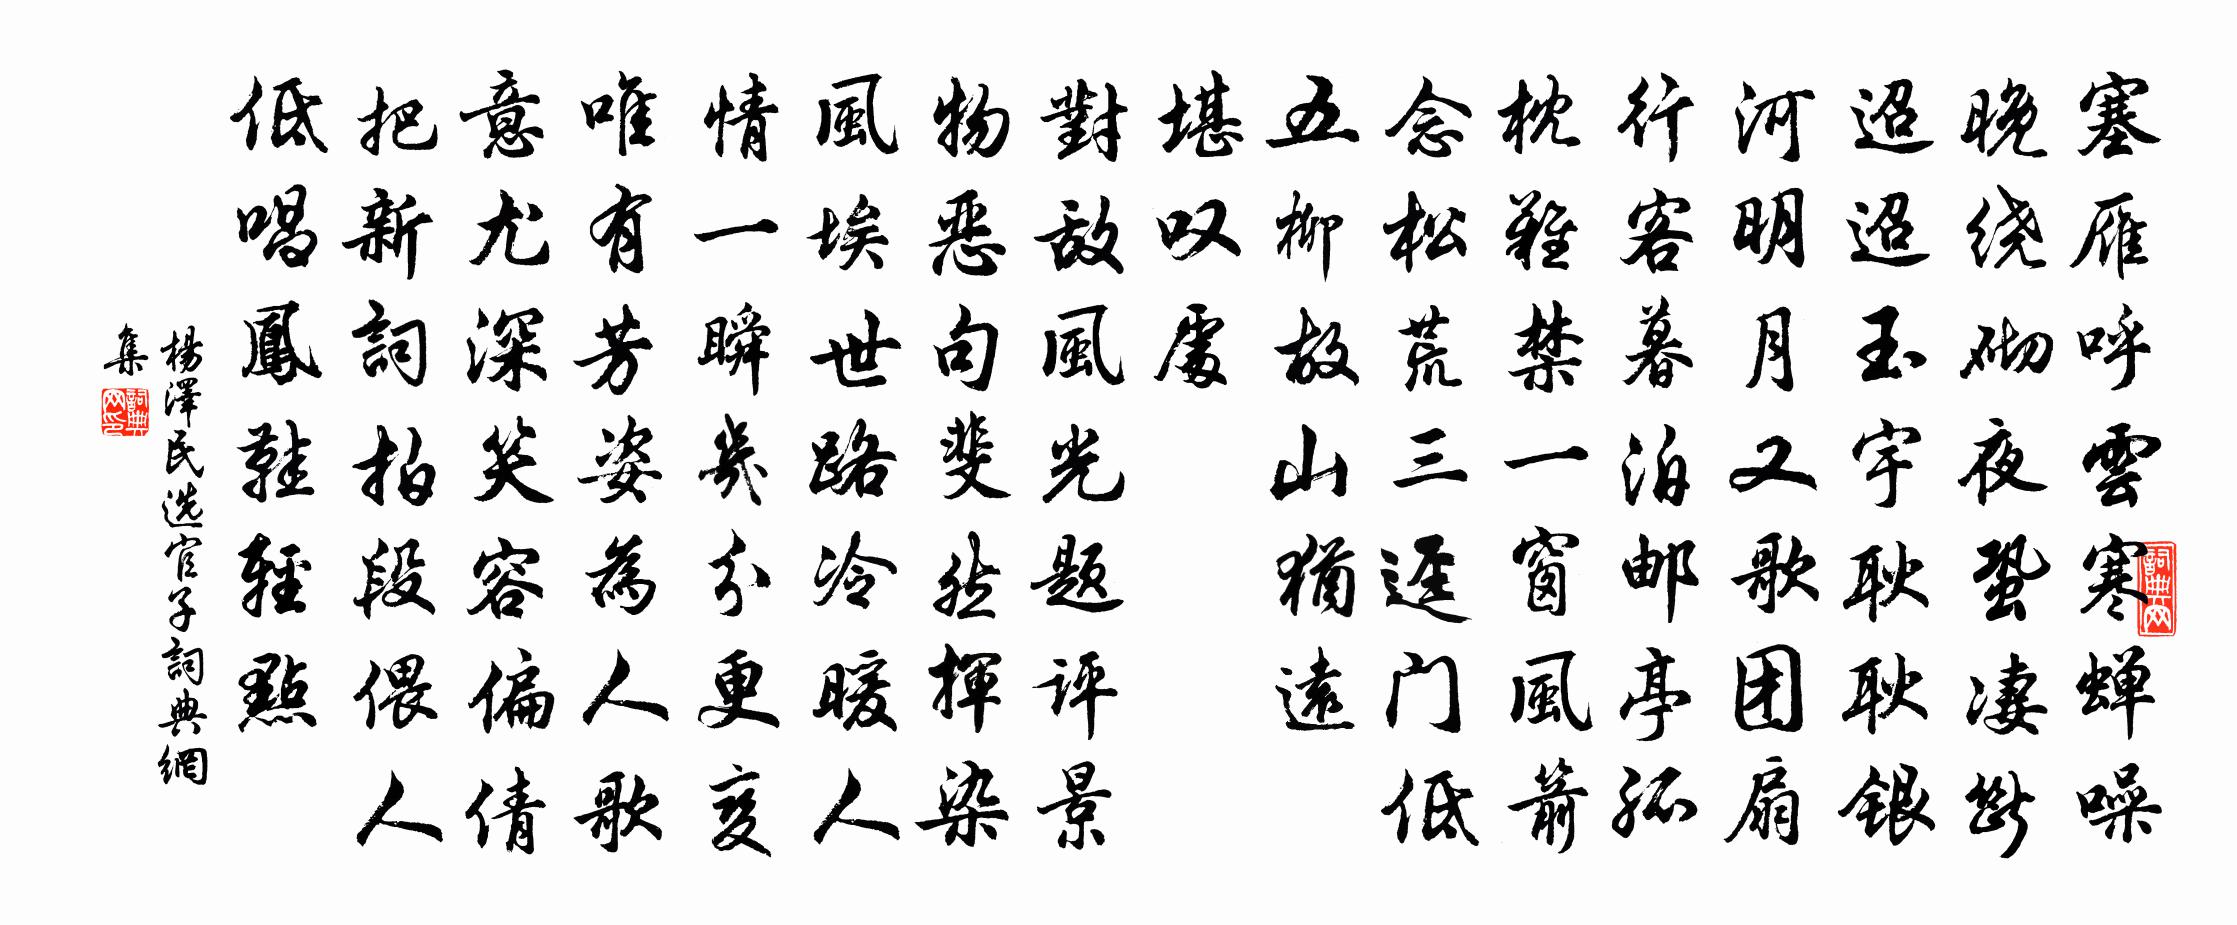 塞雁呼雲寒蝉噪
晚绕砌夜蛩凄斷
迢迢玉宇耿耿銀
河明月又歌团扇
行客暮泊邮亭孤
枕難禁一窗風箭
念松荒三逕门低
五柳故山猶遠
堪叹處
對敌風光题评景
物惡句斐然揮染
風埃世路冷暖人
情一瞬幾分更变
唯有芳姿為人歌
意尤深笑容偏倩
把新詞拍段偎人
低唱鳳鞋輕點
楊澤民选官子詞典網
集
詞典网
詞典网印